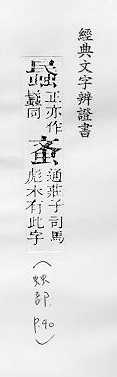 經典文字辨證書
蟁 正亦作
同
蚉 通莊子司馬
彪本有此字
(䖵部 P.90)